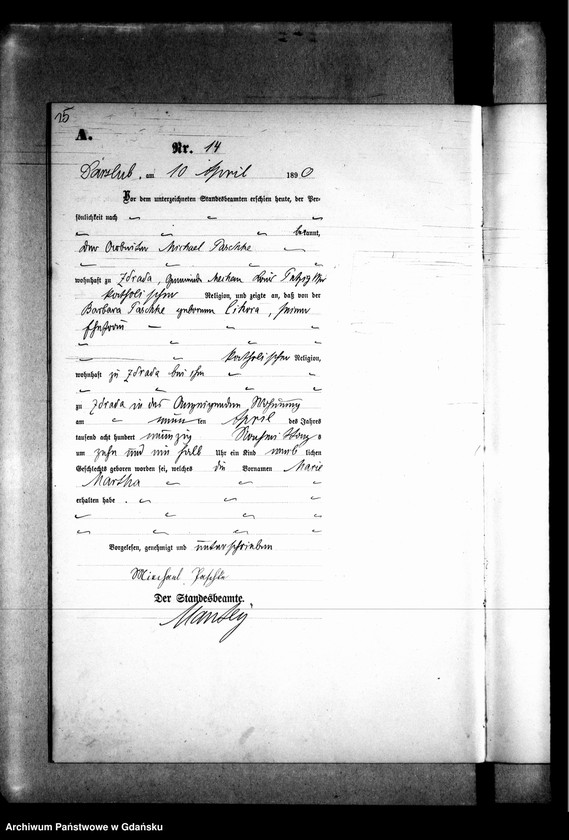 25
A.
Nr. 14
Darslub, am 10 April 1890
Vor dem unterzeichneten Standesbeamten erschien heute, der Per-
sönlichkeit nach
bekannt,
der Arbeiter Michael Paschke
wohnhaft zu Zdrada, Gemeinde
katholischer Religion, und zeigte an, daß von der
Barbara Paschke geborenen Cikora, seiner
Ehefrau
katholischer Religion,
wohnhaft zu Zdrada bei ihm
zu Zdrada in des Anzeigenden Wohnung
am neun ten April des Jahres
tausend acht hundert neunzig Nachmittags
um zehn und ein halb Uhr ein Kind weib lichen
Geschlechts geboren worden sei, welches die Vornamen Marie
Martha
erhalten habe.
Vorgelesen, genehmigt und unterschrieben
Miechael Paschke
Der Standesbeamte.
Archiwum Państwowe w Gdańsku